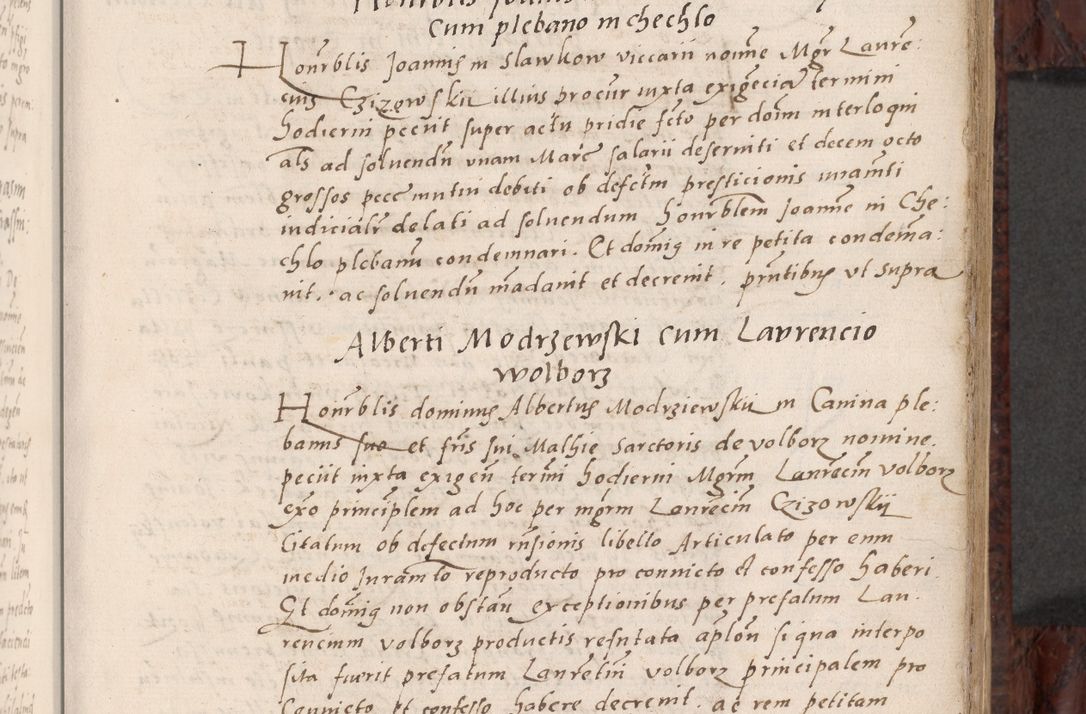 cum plebano in chechlo
Honrblis Joannis in Slawkow viccarii noie Mgr Laure:
cius Czizowskii illius procur iuxta exigēcia termini
hodierni peciit super actu pridie fcto per doim interloqui
als ad soluendū vnam Marc salarii deseruiti et decem octo
grossos pecc mutui debiti ob defctm presticionis iuramti
iudicialr delati ad soluendum honrblem Joanne in Che:
chlo plebanū condemnari. Et domīg in re petita condemna:
uit. ac soluendū mādauit et decreuit. prntibus vt supra
Alberti Modrzewski cum Laurencio
wolborz
Honrblis dominus Albertus Modrziewskii in Canina ple:
banus suo et fris sui Mathie Sarctoris de volborz nomine.
peciit iuxta exigen termi hodierni Mgrm Laurēciū volborz
principlem ad hoc per mgrm Laurēciū Czizowskij
Citatum ob defectum rnsionis libello Articulato per eum
medio Juramto reproducto pro conuicto et confesso haberi.
Et domīg non obstan exceptionibus per prefatum Lau.
rencium volborz productis refutata aplōn si qua interpo
sita fuerit prefatum Laurētiū volborz principalem pro
Conuicto et confesso habere decreuit. ac rem petitam